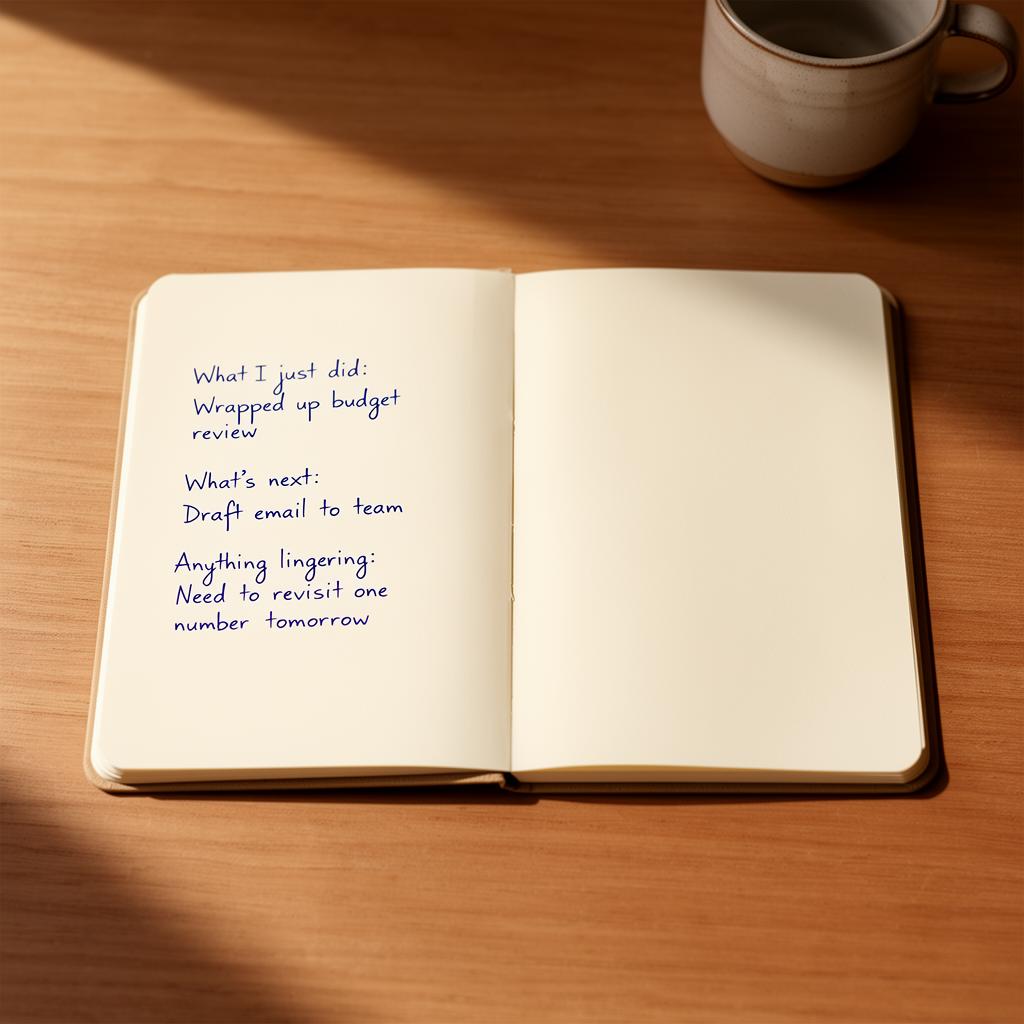 What I just did:
Wrapped up budget
review
What's next:
Draft email to team
Anything lingering:
Need to revisit one
number tomorrow